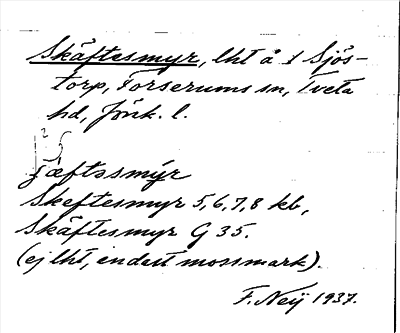 Skäftesmyr, lht å 1 Sjös-
torp, Forserums sn, Tveta
hd, Jönk. l.
ʃæftssmýr
Skeftesmyr 5,6,7,8 kb,
Skäftesmyr G 35.
(ej lht, endast mossmark).
F. Neij 1937.